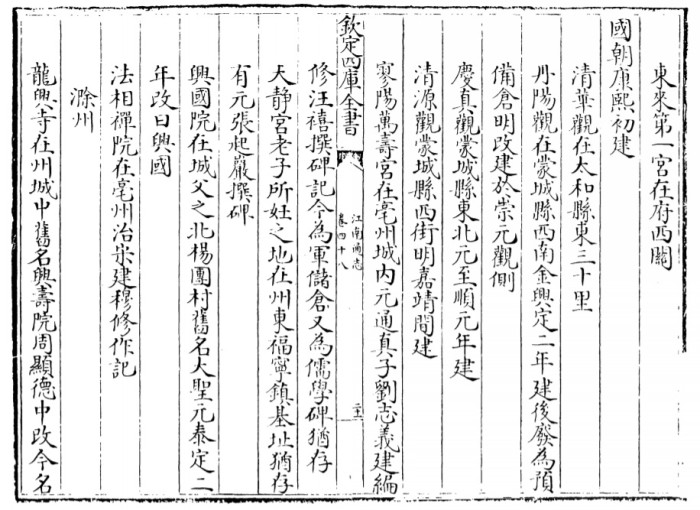 東來第一宮在府西關
國朝康熙初建
清華觀在太和縣東三十里
丹陽觀在蒙城縣西南金興定二年建後廢為預
備倉明改建於崇元觀側
慶真觀蒙城縣東北元至順元年建
清源觀蒙城縣西街明嘉靖間建
寥陽萬壽宮在亳州城内元通真子劉志義建編
欽定四庫全書
江南通志
卷四十八
修汪禧撰碑記今為軍儲倉又為儒學碑猶存
天静宮老子所妊之地在州東福寧鎮基址猶存
有元張起巖撰碑
興國院在城父之北楊團村舊名大聖元泰定二
年改曰興國
法相禪院在亳州治宋建穆修作記
滁州
龍興寺在州城中舊名興壽院周顯德中改今名